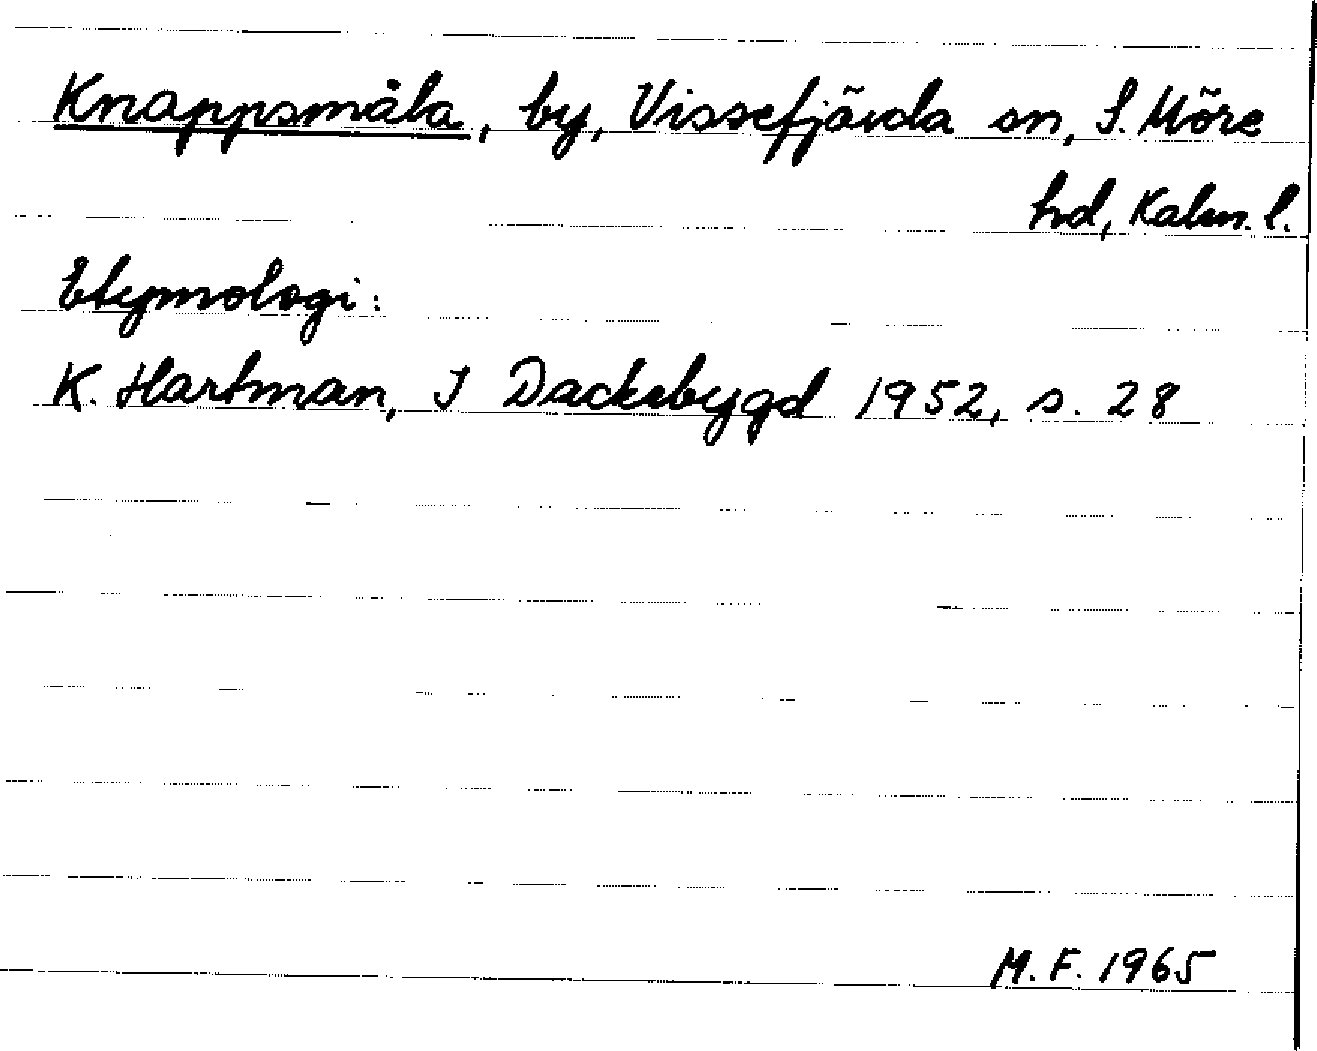 Knappsmåla, by, Vissefjärda sn, S. Möre
hd, Kalm. l.
Etymologi:
K. Hartman, I Dackebygd 1952, s. 28
M. F. 1965